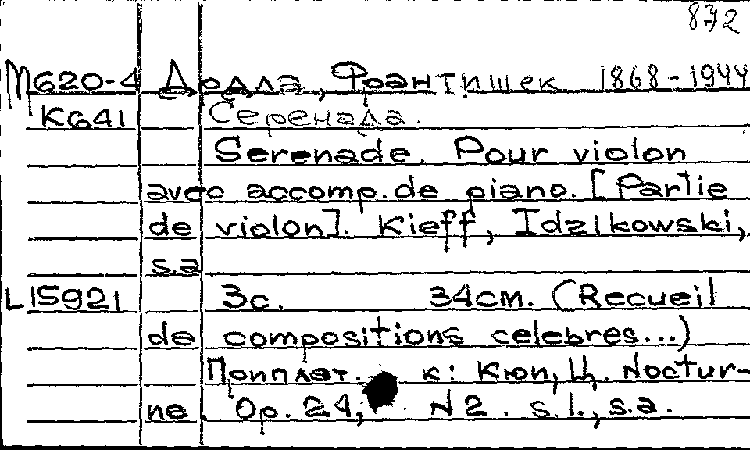 872
М620-4 Дрдла, Франтишек 1868-1944
К641 Серенада.
Serenade. Pour violon
avec accomp. de piano. [Partie
de violon]. Kieff, Idzikowski,
s.a
L15921 3с. 34см. (Recueil
de compositions celebres...)
Приплет. к: Кюи, Ц. Noctur-
ne. Op. 24, N2. s.l., s.a.